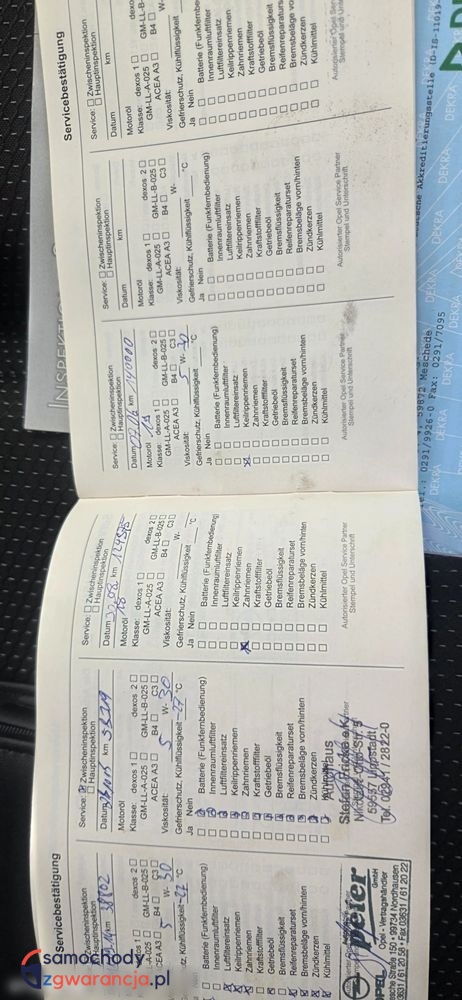 Servicebestätigung
Service: Zwischeninspektion
Hauptinspektion
Datum km
Motoröl
Klasse: dexos 1
GM-LL-A-025 GM-LL-B-025
ACEA A3 B4
Viskosität: W-
Gefrierschutz, Kühlflüssigkeit
Ja Nein
Batterie (Funkfernbedienung)
Innenraumluftfilter
Luftfiltereinsatz
Keilrippenriemen
Zahnriemen
Kraftstofffilter
Getriebeöl
Bremsflüssigkeit
Reifenreparaturset
Bremsbeläge vorn/hinten
Zündkerzen
Kühlmittel
Autorisierter Opel Service Partner
Stempel und Unterschrift
Service: Zwischeninspektion
Hauptinspektion
Datum km
Motoröl
Klasse: dexos 1 dexos 2
GM-LL-A-025 GM-LL-B-025
ACEA A3 B4 C3
Viskosität: W-
Gefrierschutz, Kühlflüssigkeit °C
Ja Nein
Batterie (Funkfernbedienung)
Innenraumluftfilter
Luftfiltereinsatz
Keilrippenriemen
Zahnriemen
Kraftstofffilter
Getriebeöl
Bremsflüssigkeit
Reifenreparaturset
Bremsbeläge vorn/hinten
Zündkerzen
Kühlmittel
Autorisierter Opel Service Partner
Stempel und Unterschrift
Service: Zwischeninspektion
Hauptinspektion
Datum km 140000
Motoröl
Klasse: dexos 1 dexos 2
GM-LL-A-025 GM-LL-B-025
ACEA A3 B4 C3
Viskosität: 5 W-30
Gefrierschutz, Kühlflüssigkeit °C
Ja Nein
Batterie (Funkfernbedienung)
Innenraumluftfilter
Luftfiltereinsatz
Keilrippenriemen
Zahnriemen
Kraftstofffilter
Getriebeöl
Bremsflüssigkeit
Reifenreparaturset
Bremsbeläge vorn/hinten
Zündkerzen
Kühlmittel
Autorisierter Opel Service Partner
Stempel und Unterschrift
Service: Zwischeninspektion
Hauptinspektion
Datum km
Motoröl
Klasse: dexos 1 dexos 2
GM-LL-A-025 GM-LL-B-025
ACEA A3 B4 C3
Viskosität: W-
Gefrierschutz, Kühlflüssigkeit °C
Ja Nein
Batterie (Funkfernbedienung)
Innenraumluftfilter
Luftfiltereinsatz
Keilrippenriemen
Zahnriemen
Kraftstofffilter
Getriebeöl
Bremsflüssigkeit
Reifenreparaturset
Bremsbeläge vorn/hinten
Zündkerzen
Kühlmittel
Autorisierter Opel Service Partner
Stempel und Unterschrift
Service: Zwischeninspektion
Hauptinspektion
Datum km
Motoröl
Klasse: dexos 1 dexos 2
GM-LL-A-025 GM-LL-B-025
ACEA A3 B4 C3
Viskosität: 5 W-30
Gefrierschutz, Kühlflüssigkeit -27 °C
Ja Nein
Batterie (Funkfernbedienung)
Innenraumluftfilter
Luftfiltereinsatz
Keilrippenriemen
Zahnriemen
Kraftstofffilter
Getriebeöl
Bremsflüssigkeit
Reifenreparaturset
Bremsbeläge vorn/hinten
Zündkerzen
Autohaus
Tel. 02941 / 2822-0
Servicebestätigung
Zwischeninspektion
Hauptinspektion
km
dexos 2
GM-LL-A-025 GM-LL-B-025
ACEA A3 B4 C3
5 W-30
Gefrierschutz, Kühlflüssigkeit °C
Nein
Batterie (Funkfernbedienung)
Innenraumluftfilter
Luftfiltereinsatz
Keilrippenriemen
Zahnriemen
Kraftstofffilter
Getriebeöl
Bremsflüssigkeit
Reifenreparaturset
Bremsbeläge vorn/hinten
Zündkerzen
Kühlmittel
peter
GmbH
Opel - Vertragshändler
99734 Nordhausen
INSPEKTIO
DEKRA
Meschede
0291/9926-0 Fax: 0291/7095
samochody
zgwarancja.pl